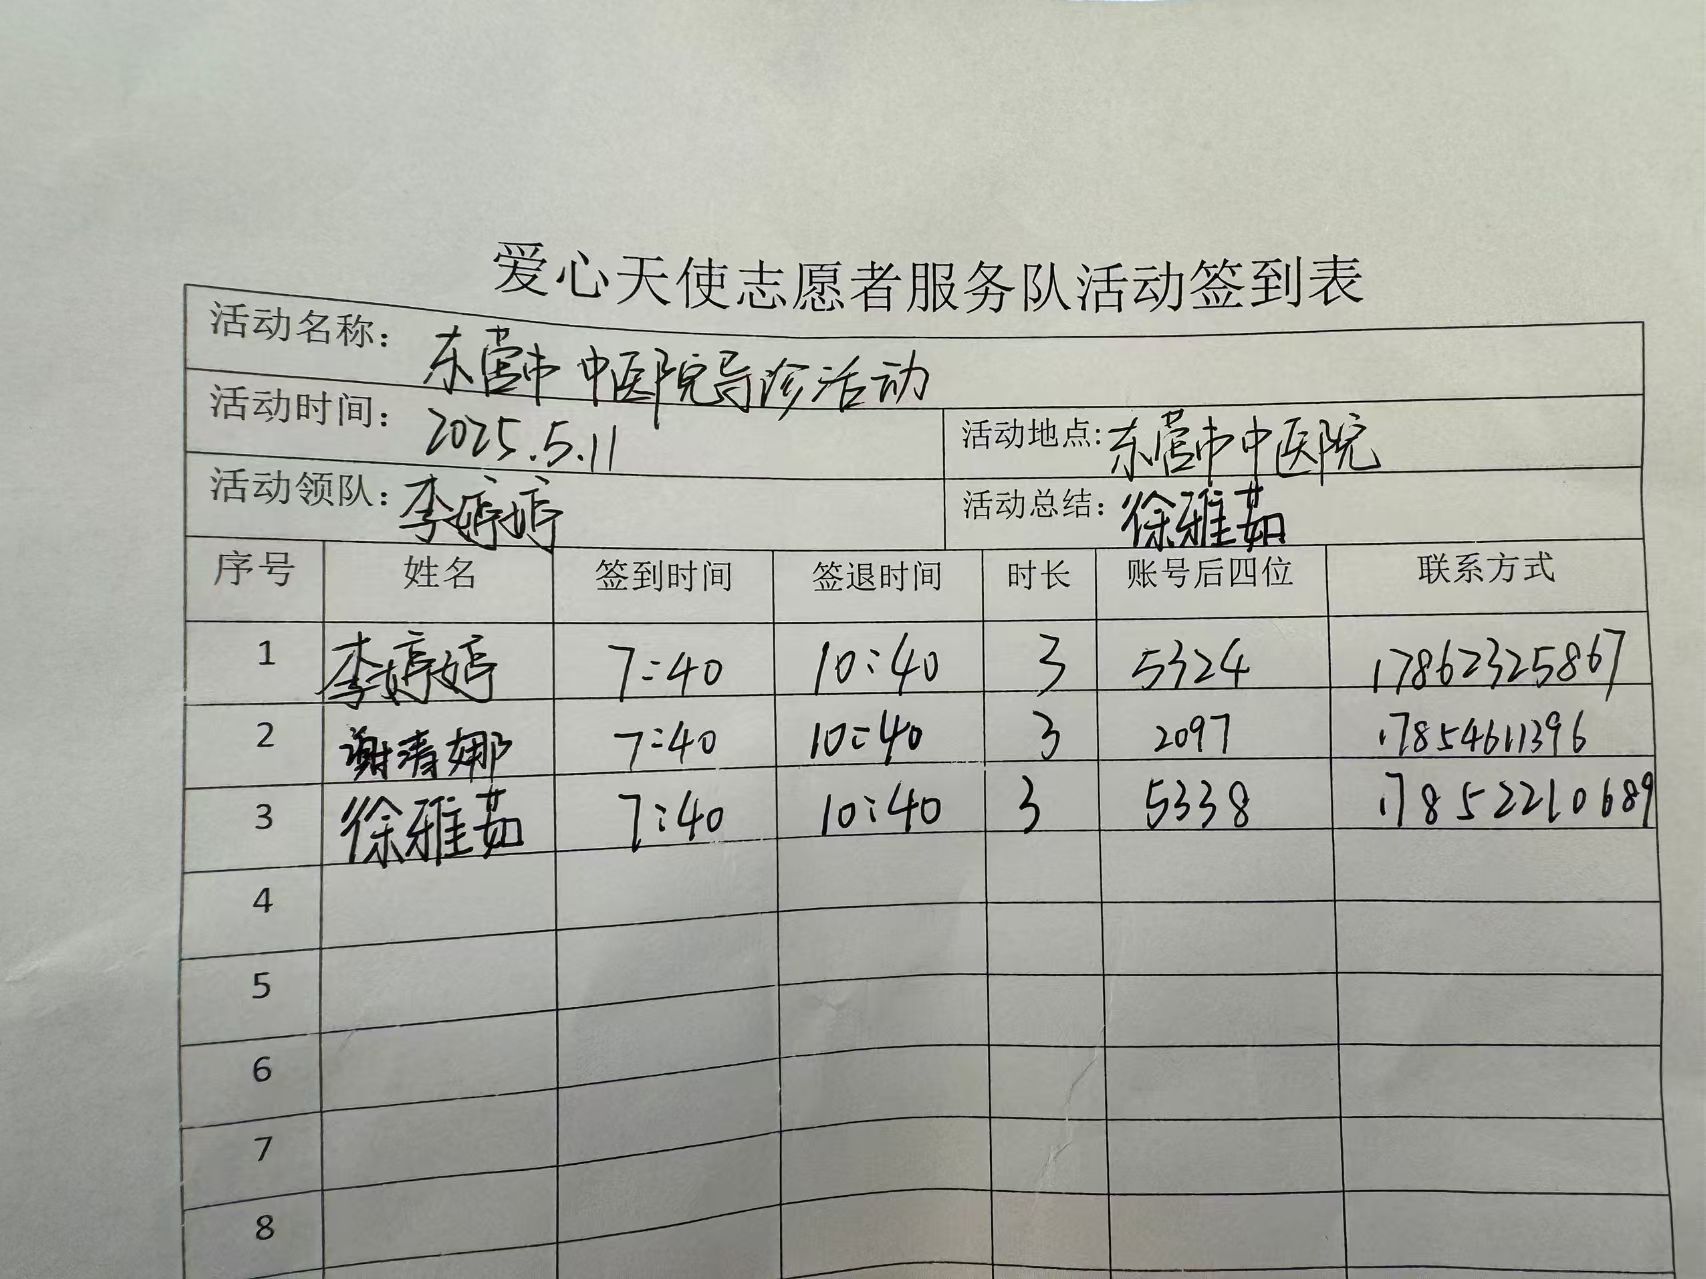 爱心天使志愿者服务队活动签到表
活动名称: 东营市中医院导诊活动
活动时间: 2025.5.11 活动地点: 东营市中医院
活动领队: 李婷婷 活动总结: 徐雅茹
序号 姓名 签到时间 签退时间 时长 账号后四位 联系方式
1 李婷婷 7:40 10:40 3 5324 17862325867
2 谢清娜 7:40 10:40 3 2097 17854611396
3 徐雅茹 7:40 10:40 3 5338 17852210689
4
5
6
7
8